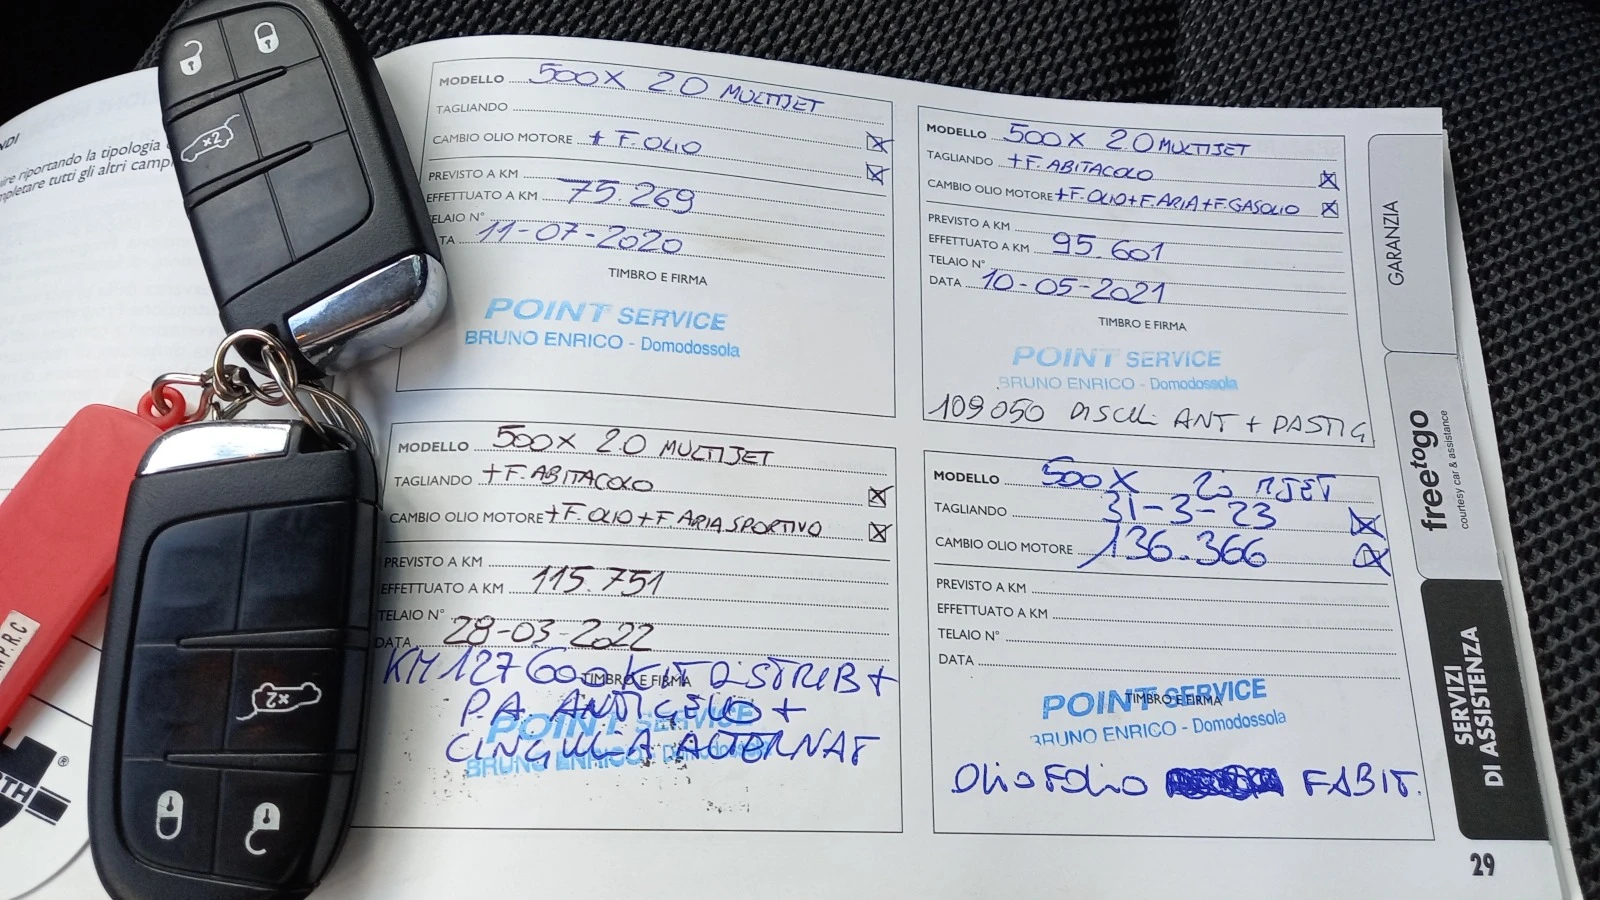 NDI
ire riportando la tipologia
mpletare tutti gli altri campi
MODELLO 500X 2.0 MULTIJET
TAGLIANDO
CAMBIO OLIO MOTORE + F. OLIO
PREVISTO A KM
EFFETTUATO A KM 75.269
ELAIO N°
TA 11-07-2020
TIMBRO E FIRMA
POINT SERVICE
BRUNO ENRICO - Domodossola
MODELLO 500X 2.0 MULTIJET
TAGLIANDO +F. ABITACOLO
CAMBIO OLIO MOTORE +F.OLIO+F.ARIA+F.GASOLIO
PREVISTO A KM
EFFETTUATO A KM 95.601
TELAIO N°
DATA 10-05-2021
TIMBRO E FIRMA
POINT SERVICE
BRUNO ENRICO - Domodossola
109050 DISCHI ANT + PASTIG
MODELLO 500X 2.0 MULTIJET
TAGLIANDO +F. ABITACOLO
CAMBIO OLIO MOTORE +F.OLIO+F ARIA SPORTIVO
PREVISTO A KM
EFFETTUATO A KM 115.751
TELAIO N°
DATA 28-03-2022
KM 127600 KIT DISTRIB +
TIMBRO E FIRMA
P.A. ANTIGELO +
POINT SERVICE
CINGHIA ALTERNAT
BRUNO ENRICO - Domodossola
MODELLO 500X 20 MJET
TAGLIANDO 31-3-23
CAMBIO OLIO MOTORE 136.366
PREVISTO A KM
EFFETTUATO A KM
TELAIO N°
DATA
TIMBRO E FIRMA
POINT SERVICE
BRUNO ENRICO - Domodossola
Olio FOlio FABIT.
GARANZIA
freetogo
courtesy car & assistance
SERVIZI
DI ASSISTENZA
29
x2
x2
P.R.C
RTH
®